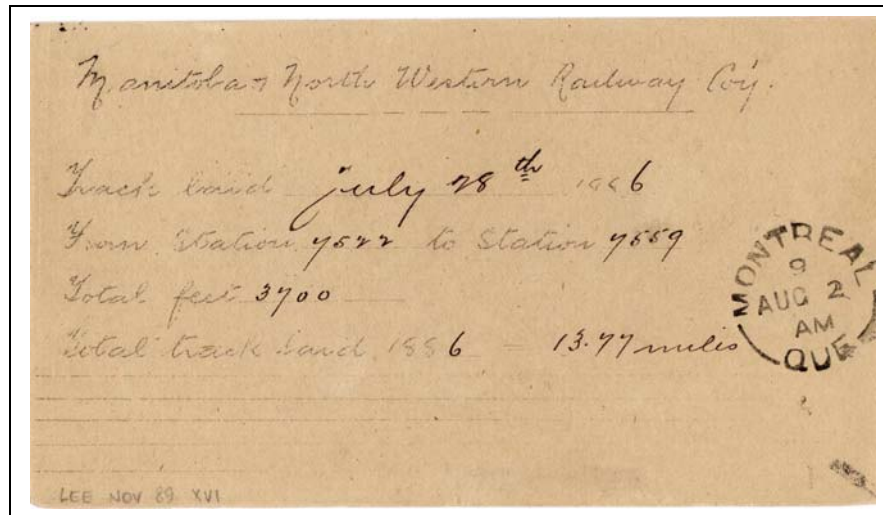 Manitoba & North Western Railway Coy.
Track laid July 28th 1886
From Station 7522 to Station 7559
Total feet 3700
Total track laid 1886 = 13.77 miles
MONTREAL
9
AUG 2
AM
QUE
LEE NOV 89 XVI